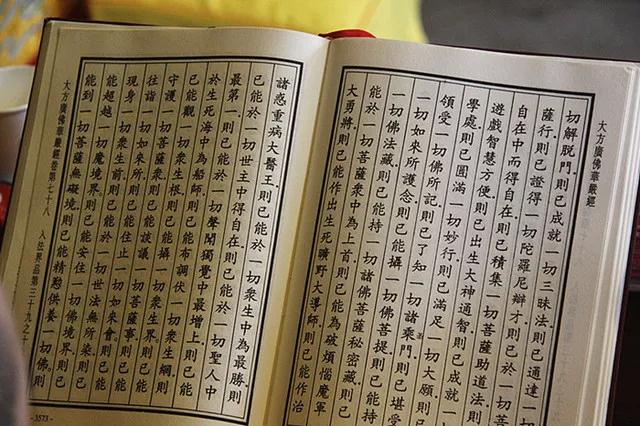 大方廣佛華嚴經
切解脫門。則已成就一切三昧法。則已通達一切
薩行。則已證得一切陀羅尼辯才。則已於一切
自在中而得自在。則已積集一切菩薩助道法。則
遊戲智慧方便。則已出生大神通智。則已成就一
學處。則已圓滿一切妙行。則已滿足一切大願。則已
領受一切佛所記。則已了知一切諸乘門。則已堪受
一切如來所護念。則已能攝一切佛菩提。則已能持
一切佛法藏。則已能持一切諸佛菩薩秘密藏。則已
能於一切菩薩眾中為上首。則已能為破煩惱魔軍
大勇將。則已能作出生死曠野大導師。則已能作治
諸惑重病大醫王。則已能於一切眾生中為最勝。則
已能於一切世主中得自在。則已能於一切聖人中
最第一。則已能於一切聲聞獨覺中最增上。則已能
於生死海中為船師。則已能布調伏一切眾生網。則
已能觀一切眾生根。則已能攝一切眾生界。則已能
守護一切菩薩眾。則已能談議一切菩薩事。則已能
往詣一切如來所。則已能住止一切如來會。則已能
現身一切眾生前。則已能於一切世法無所染。則已
能超越一切魔境界。則已能安住一切佛境界。則已
能到一切菩薩無礙境。則已能精懃供養一切佛。則
大方廣佛華嚴經卷第七十八 入法界品第三十九之十
- 3573 -